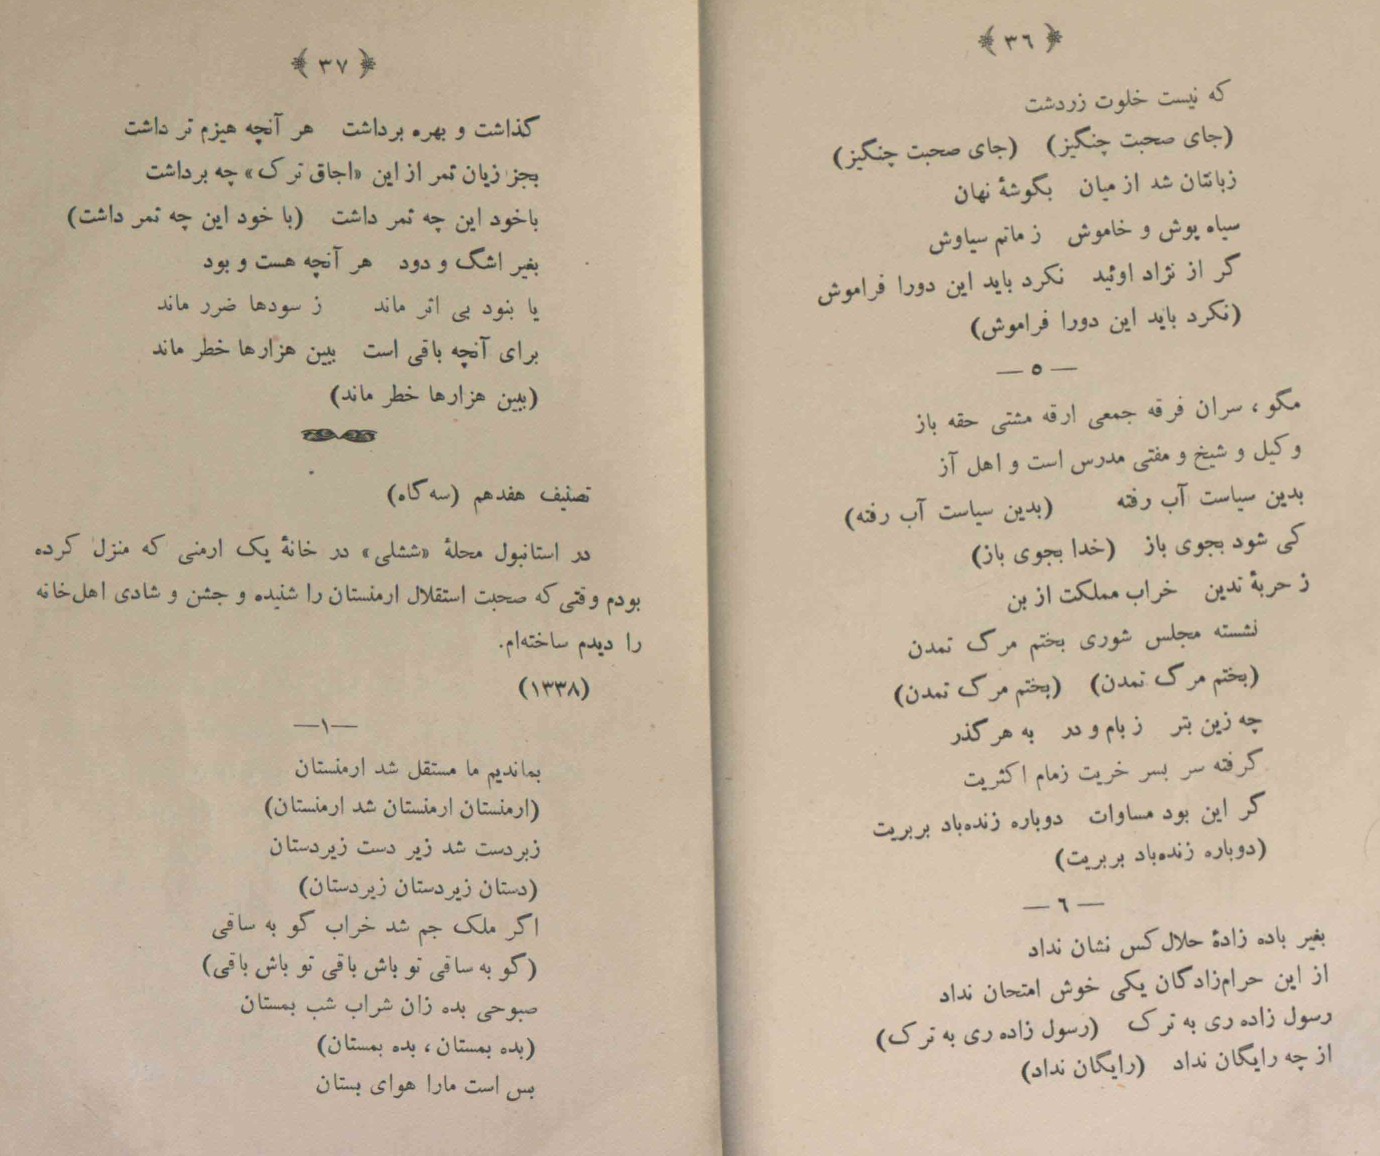 ﴿ ٣٦ ﴾
که نیست خلوت زردشت
(جای صحبت چنگیز) (جای صحبت چنگیز)
زبانتان شد از میان بگوشهٔ نهان
سیاه پوش و خاموش ز ماتم سیاوش
گر از نژاد اوئید نکرد باید این دورا فراموش
(نکرد باید این دورا فراموش)
— ٥ —
مگو ، سران فرقه جمعی ارقه مشتی حقه باز
وکیل و شیخ و مفتی مدرس است و اهل آز
بدین سیاست آب رفته (بدین سیاست آب رفته)
کی شود بجوی باز (خدا بجوی باز)
ز حربهٔ تدین خراب مملکت از بن
نشسته مجلس شوری بختم مرگ تمدن
(بختم مرگ تمدن) (بختم مرگ تمدن)
چه زین بتر ز بام و در به هر گذر
گرفته سر بسر خریت زمام اکثریت
گر این بود مساوات دوباره زنده‌باد بربریت
(دوباره زنده‌باد بربریت)
— ٦ —
بغیر باده زادهٔ حلال کس نشان نداد
از این حرام‌زادگان یکی خوش امتحان نداد
رسول زاده ری به ترک (رسول زاده ری به ترک)
از چه رایگان نداد (رایگان نداد)
﴿ ٣٧ ﴾
گذاشت و بهره برداشت هر آنچه هیزم تر داشت
بجز زیان ثمر از این «اجاق ترک» چه برداشت
باخود این چه ثمر داشت (با خود این چه ثمر داشت)
بغیر اشگ و دود هر آنچه هست و بود
یا بنود بی اثر ماند ز سودها ضرر ماند
برای آنچه باقی است ببین هزارها خطر ماند
(ببین هزارها خطر ماند)
تصنیف هفدهم (سه گاه)
در استانبول محلهٔ «ششلی» در خانهٔ یک ارمنی که منزل کرده
بودم وقتی که صحبت استقلال ارمنستان را شنیده و جشن و شادی اهل خانه
را دیدم ساخته‌ام.
(١٣٣٨)
—١—
بماندیم ما مستقل شد ارمنستان
(ارمنستان ارمنستان شد ارمنستان)
زبردست شد زیر دست زیردستان
(دستان زیردستان زیردستان)
اگر ملک جم شد خراب گو به ساقی
(گو به ساقی تو باش باقی تو باش باقی)
صبوحی بده زان شراب شب بمستان
(بده بمستان ، بده بمستان)
بس است مارا هوای بستان